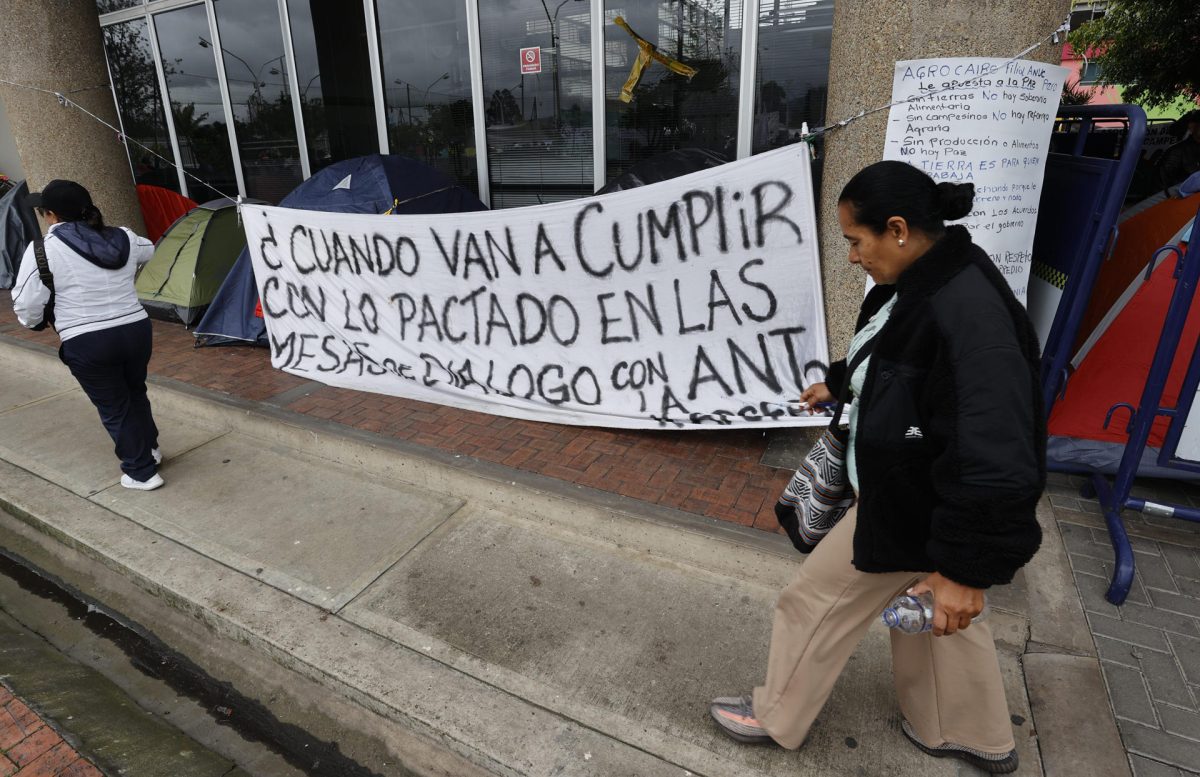 ¿CUANDO VAN A CUMPLIR
CON LO PACTADO EN LAS
MESAS DE DIALOGO CON ANT
AGROCAIRE Filial ANUC Paso
Le apuesta a la Paz
- Sin tierras No hay soberania
Alimentaria
- Sin campesinos No hay reforma
Agraria
- Sin Producción a Alimento
No hay Paz
LA TIERRA ES PARA QUIEN
TRABAJA
con los Acuerdos
Por el gobierno
CON RESPETO